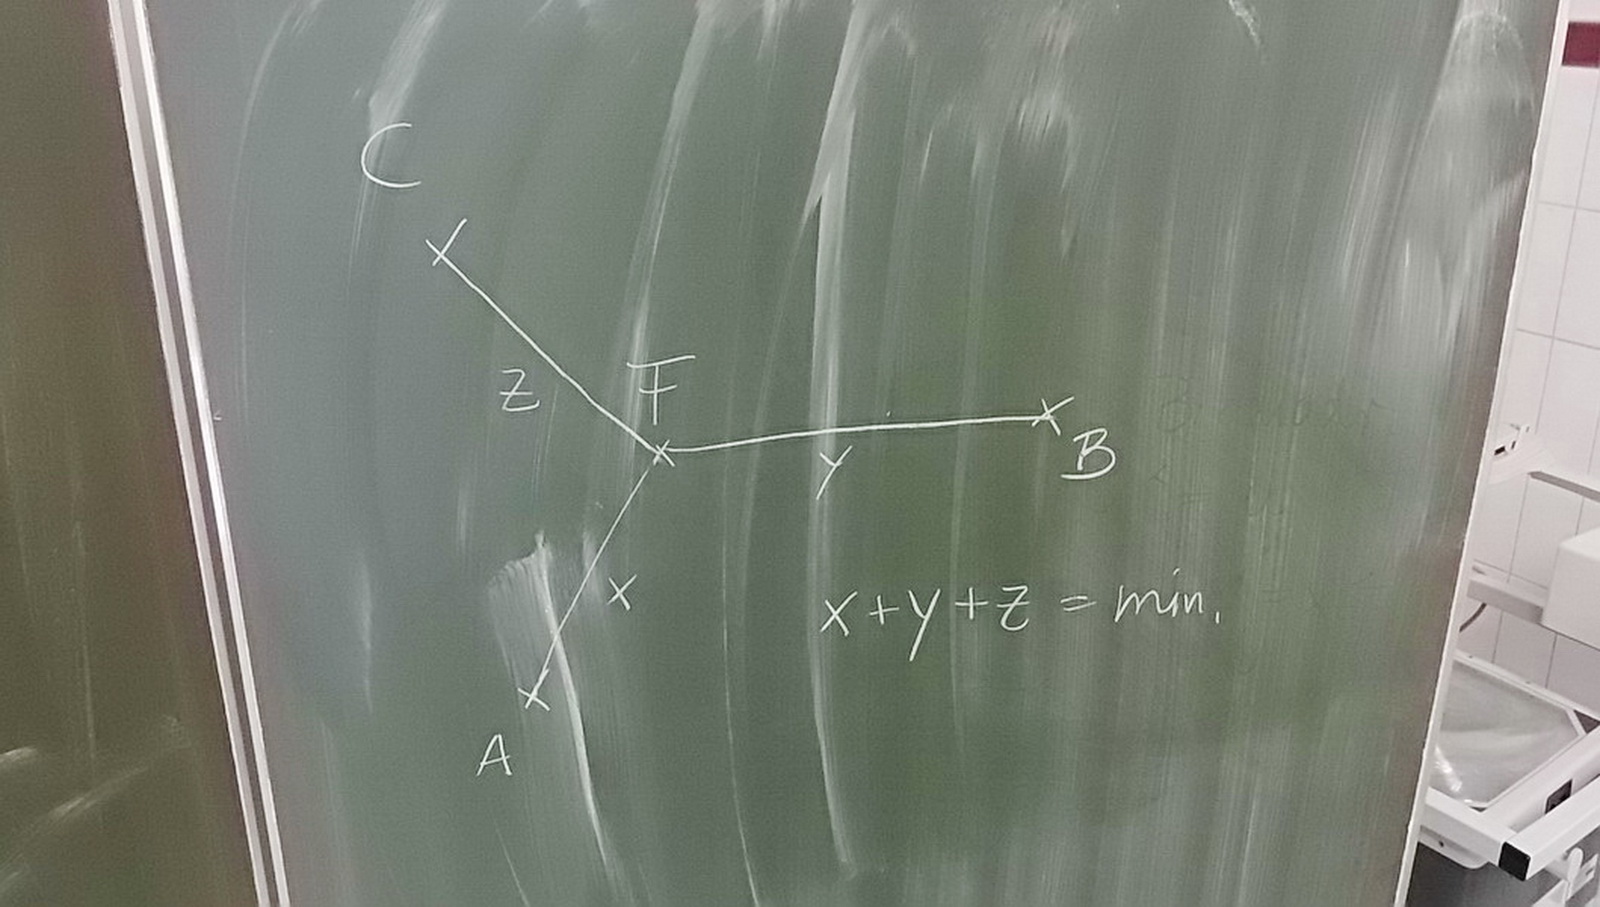 C
z
F
y
B
x
x+y+z = min.
A